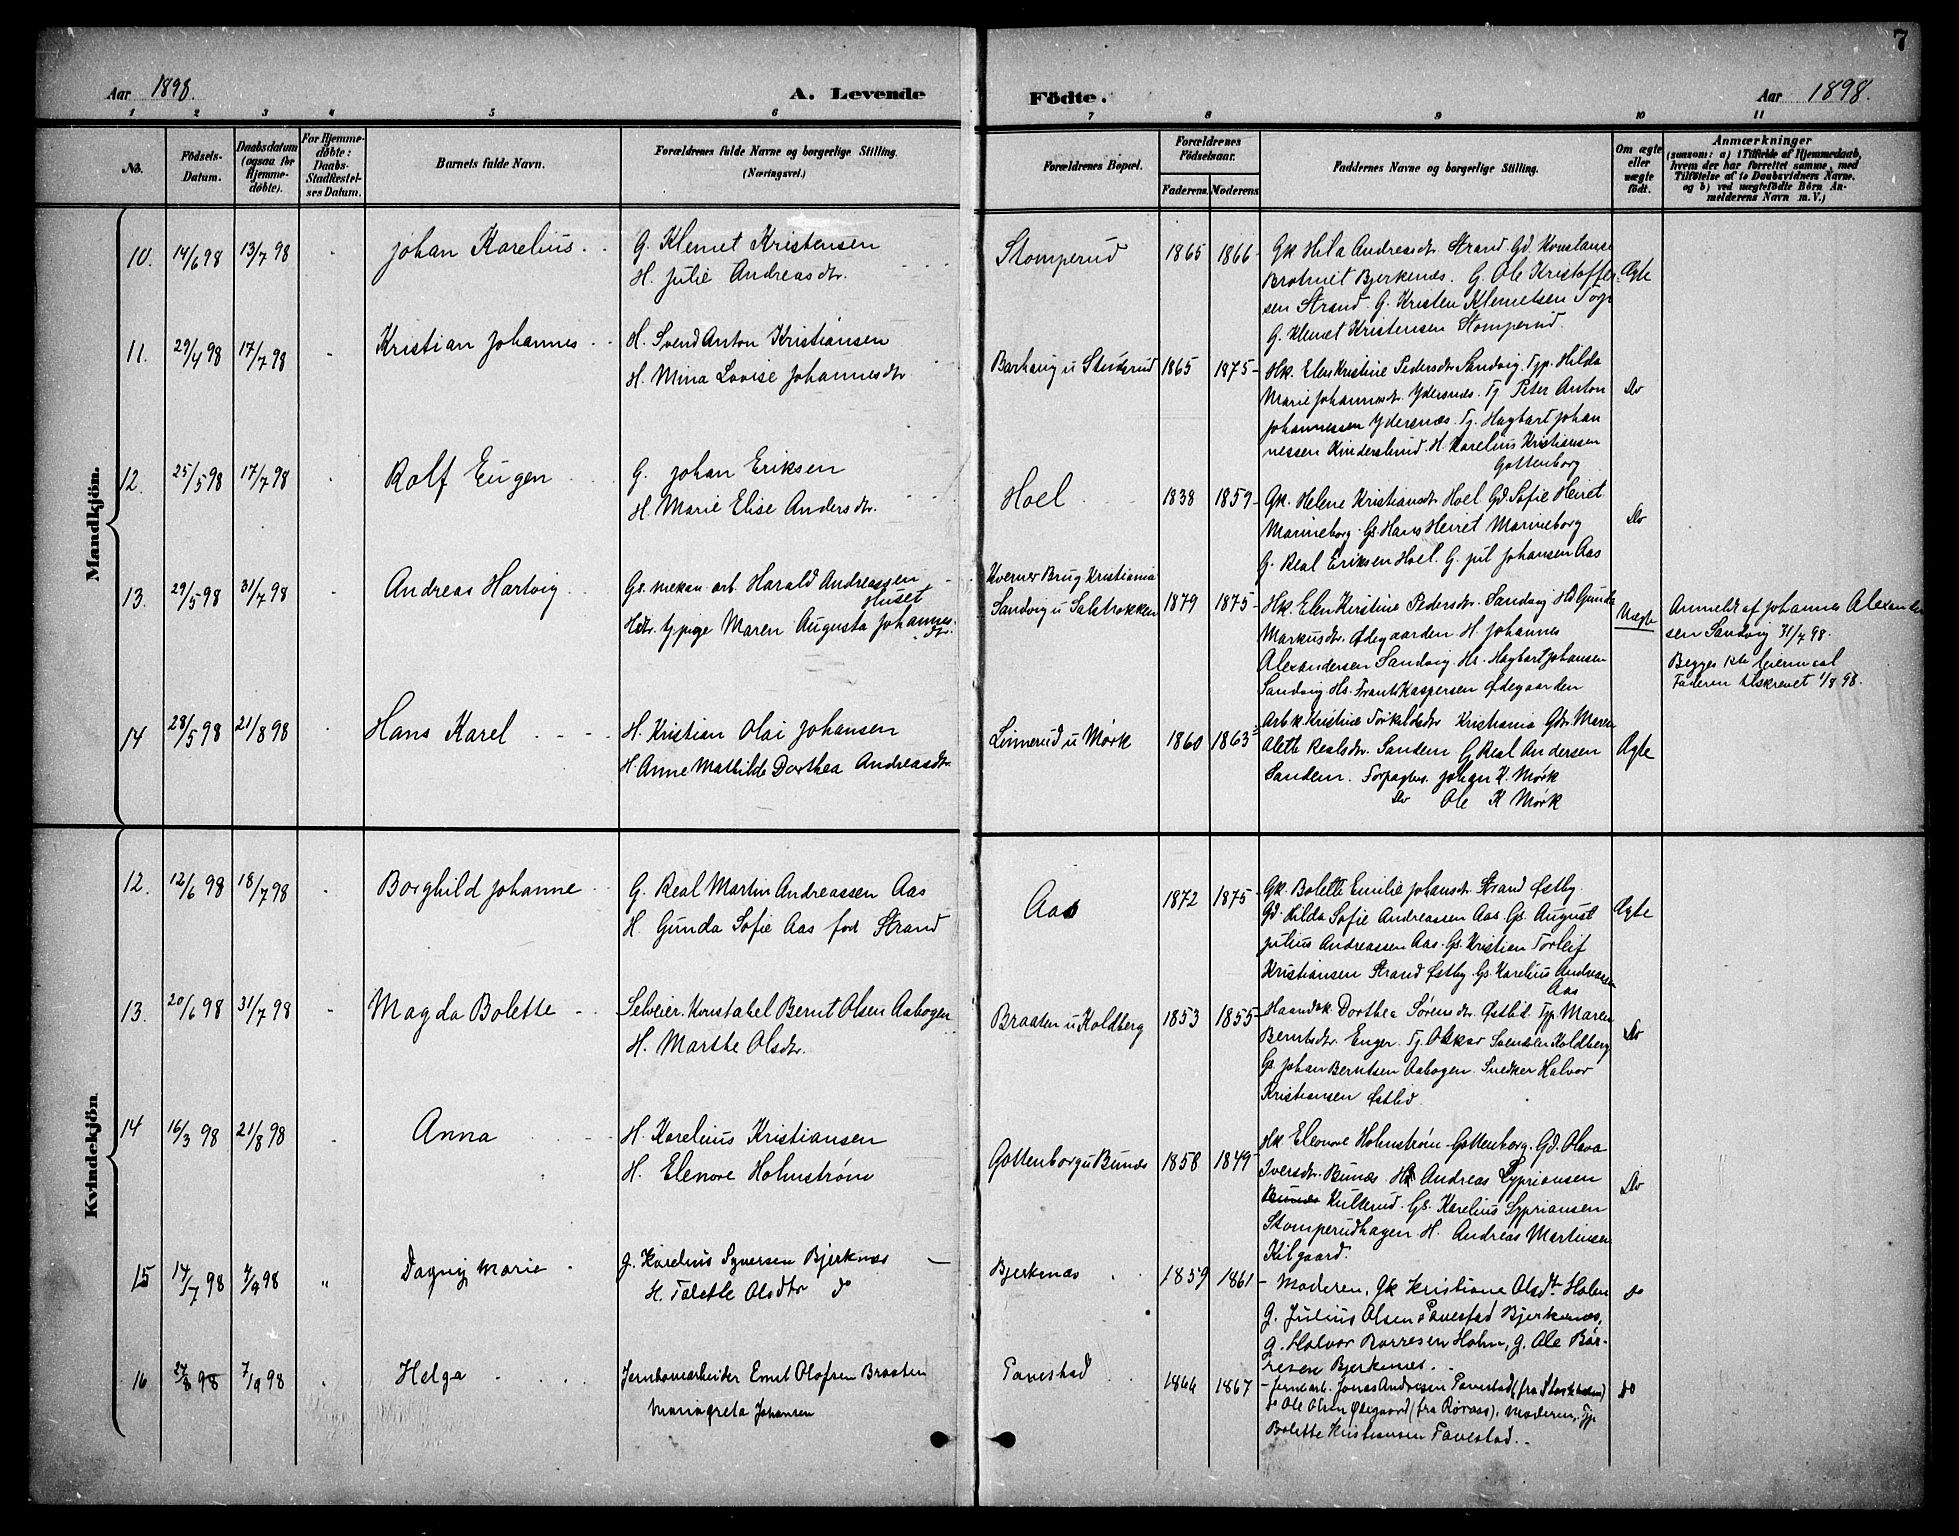 7
Aar 1898.
A. Levende
Födte.
Aar 1898.
1 2 3 4 5 6 7 8 9 10 11
No.
Födsels-
Datum.
Daabsdatum
(ogsaa for
Hjemme-
döbte).
For Hjemme-
döbte:
Daabs-
Stadfæstel-
ses Datum.
Barnets fulde Navn.
Forældrenes fulde Navne og borgerlige Stilling.
(Næringsvei.)
Forældrenes Bopæl.
Forældrenes
Födselsaar.
Faderens. Moderens.
Faddernes Navne og borgerlige Stilling.
Om ægte
eller
uægte
födt.
Anmærkninger
(saasom: a) i Tilfælde af Hjemmedaab,
hvem der har forrettet samme, med
Tilföielse af to Daabsvidners Navne,
og b) ved uægtefödte Börn An-
melderens Navn m. V.)
Mandkjön.
10. 14/6 98 13/7 98 Johan Karelius
G. Klemet Kristensen
H. Julie Andreasdtr.
Stomperud 1865 1866
Gk Hila Andreasdtr Strand Gd Konstanse
Brotnit Bjerkenæs. G Ole Kristoffer
sen Strand. G. Kristen Klemetsen Torp
G. Klemet Kristensen Stomperud.
Ægte
11. 29/4 98 17/7 98 Kristian Johannes
H. Svend Anton Kristiansen
H. Mina Lovise Johannesdtr
Barhaug u Studerud 1865 1875
Hk. Elen Kristine Pedersdtr Sandvig. Typ. Hilda
Marie Johannesdtr. Ydersnæs. Tj Peter Anton
Johannessen Ydersnæs. Tj. Hagbart Johan
nessen Kinderslund. H. Karelius Kristiansen
Gottenborg
Do
12. 25/5 98 17/7 98 Rolf Eugen
G. Johan Eriksen
H. Marie Elise Andersdtr.
Hoel 1838 1859
Gk. Helene Kristiansdtr Hoel Gd Sofie Heiret
Marineborg. Gs. Hans Heiret Marineborg
G. Real Eriksen Hoel. G. Jul Johansen Aas
Do
13. 29/5 98 31/7 98 Andreas Hartvig
Gs. mekan arb. Harald Andreassen
Huset
Hdtr. tj. pige Maren Augusta Johannes.
dtr.
Kverner Brug Kristiania
Sandvig u Salstrokken 1879 1875
Hk. Elen Kirstine Pedersdtr. Sandvig Hd Gunda
Markusdtr. Ødegaarden H. Johannes
Alexandersen Sandvig. Hs. Hagbart Johansen
Sandvig Hs. Frants Kaspersen Ødegaarden
Uægte
Anmeldt af Johannes Alexander
sen Sandvig 31/7 98.
Begges 1ste leiermaal
Faderen tilskrevet 1/8 98.
14 28/5 98 21/8 98 Hans Karel
H. Kristian Olai Johansen
H. Anne Mathilde Dorthea Andreasdtr
Linnerud u Mørk 1860 1863
Arb k. Kristine Torkildsdtr Kristiania Gdtr. Maren
Alette Realsdtr. Sandem G Real Andersen
Sandem. Forpagter. Johan K. Mørk
Do Ole K Mørk
Ægte
Kvindekjön
12. 12/6 98 18/7 98 Borghild Johanne
G. Real Martin Andreassen Aas
H. Gunda Sofie Aas fød Strand
Aas 1872 1875
Gk. Bolette Emilie Johansdtr Strand Østby
Gd. Hilda Sofie Andreassen Aas. Gs. August
Julius Andreassen Aas. Gs. Kristian Torleif
Kristiansen Strand Østby. Gs. Karelius Andreassen
Aas
Ægte
13. 20/6 98 31/7 98 Magda Bolette
Selveier. Konstabel Bernt Olsen Aabogen
H. Marthe Olsdtr.
Braaten u Koldberg 1853 1855
Haandvk. Dorthea Sørensdtr. Østlid Typ. Maren
Berntsdtr. Enger. Tj. Oskar Svendsen Koldberg
Gs. Johan Berntsen Aabogen. Snedker Halvor
Kristiansen Østlid
Do
14 16/3 98 21/8 98 Anna
H. Karelius Kristiansen
H. Elenore Holmstrøm
Gottenborg u Bunæs 1858 1849
Hk. Eleonore Holmstrøm Gottenborg. Gd. Olava
Iversdtr. Bunæs. H Andreas Sypriansen
Bunæs Kulterud. Gs. Karelius Sypriansen
Stomperudhagen H. Andreas Martinsen
Kilgaard.
Do
15 14/7 98 4/9 98 Dagny Marie
G. Karelius Syversen Bjerknæs
H. Tolette Olsdtr do
Bjerkenæs 1859 1861
Moderen, Gk Kristiane Olsdtr Holm
G. Julius Olsen Tavestad Bjerkenæs,
G. Halvor Borresen Holm, G. Ole Bør-
resen Bjerkenæs.
do
16 24/8 98 7/9 98 Helga
Jernbanearbeider Ernst Olofsen Braaten
Mariagreta Johansen
Tavestad 1866 1867
Jernb.arb. Jonas Andresen Tavestad (fra Stockholm)
do Ole Olsen Ødegaard (fra Røraas), Moderen, Typ
Bolette Kristiansen Tavestad.
do